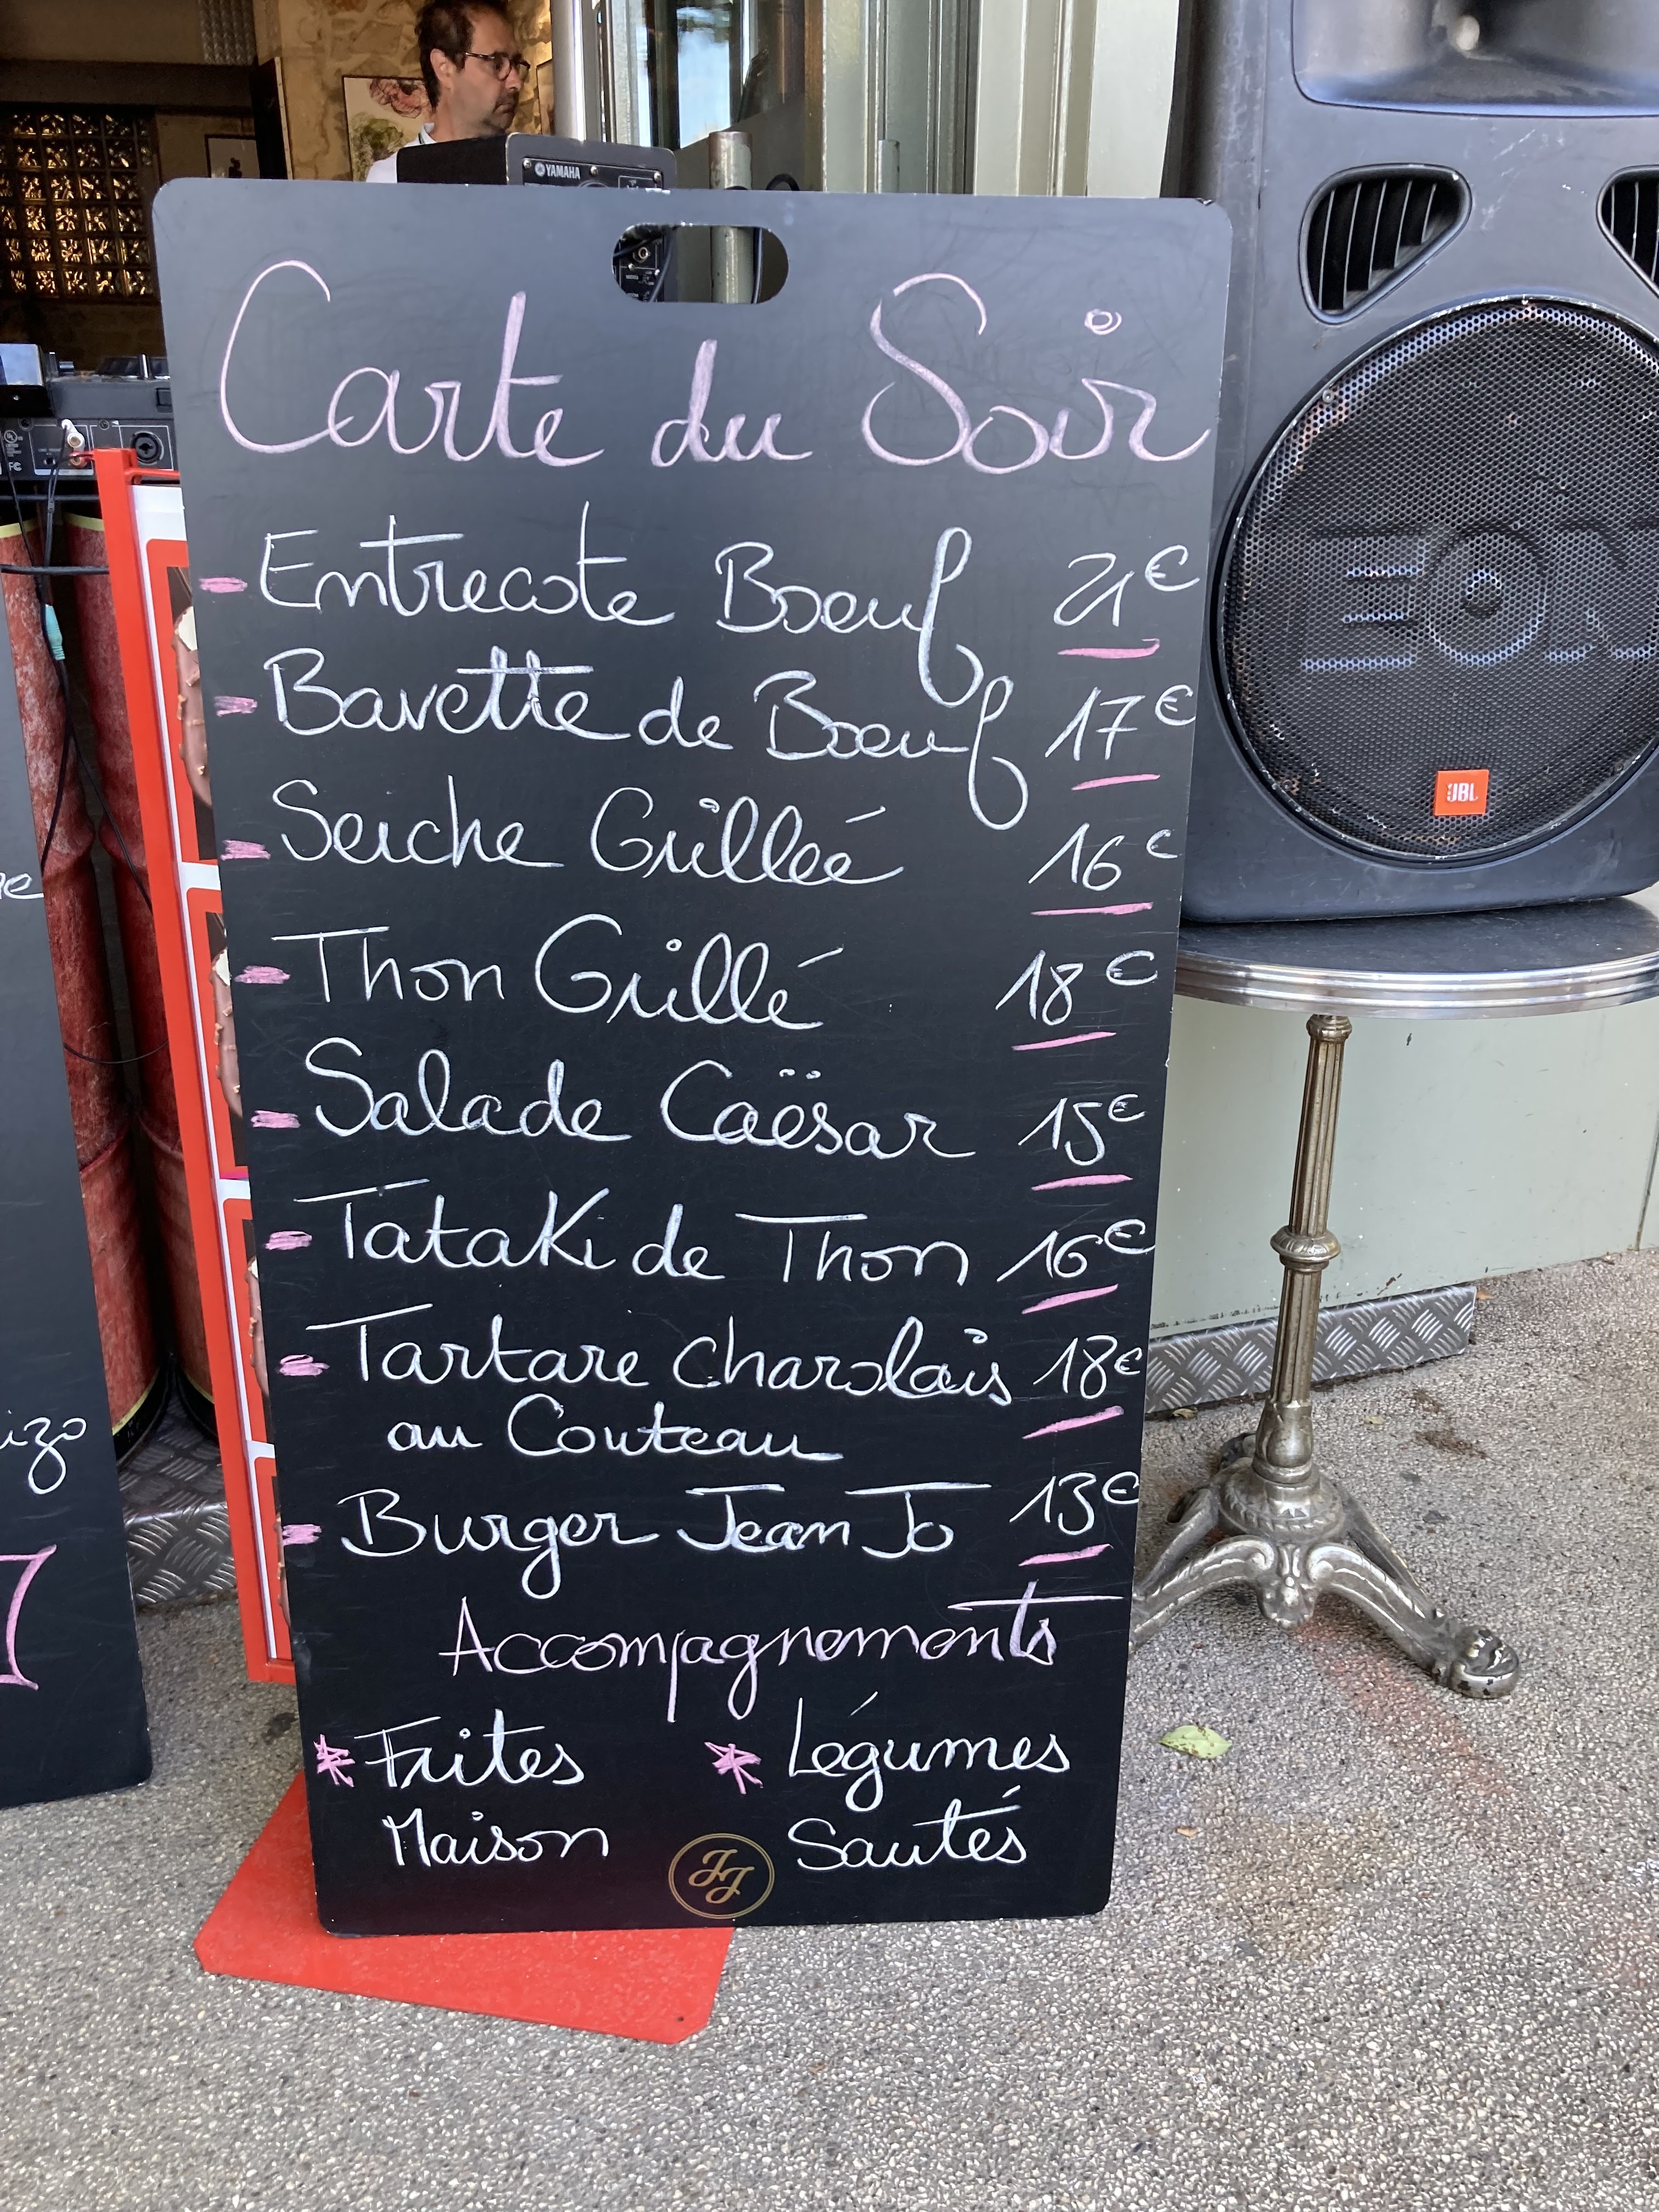 YAMAHA
Carte du Soir
Entrecote Boeuf 21€
Bavette de Boeuf 17€
Seiche Grillée 16€
Thon Grillé 18€
Salade Caësar 15€
Tataki de Thon 16€
Tartare Charolais 18€
au Couteau
Burger Jean Jo 13€
Accompagnements
* Frites * Légumes
Maison Sautés
JJ
EON
JBL